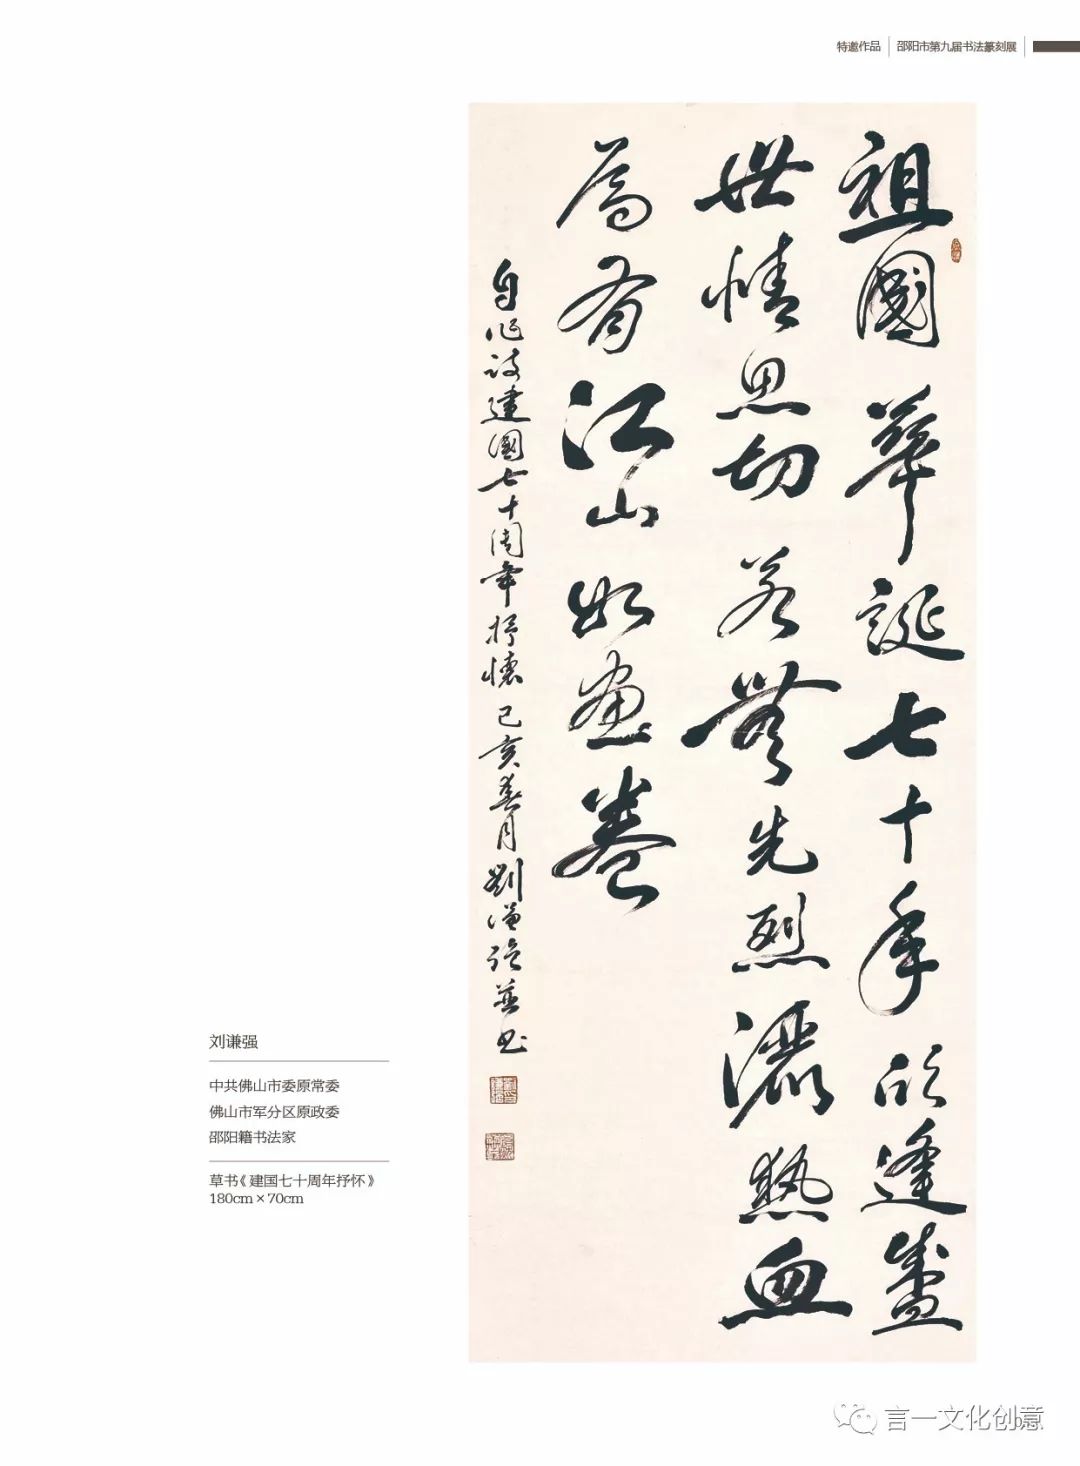 特邀作品 邵阳市第九届书法篆刻展
祖國華誕七十年欣逢盛
世情思切若無先烈灑熱血
焉有江山如畫卷
自作詩建國七十周年抒懷己亥春月劉謙強並書
刘谦强
中共佛山市委原常委
佛山市军分区原政委
邵阳籍书法家
草书《建国七十周年抒怀》
180cm×70cm
言一文化创意